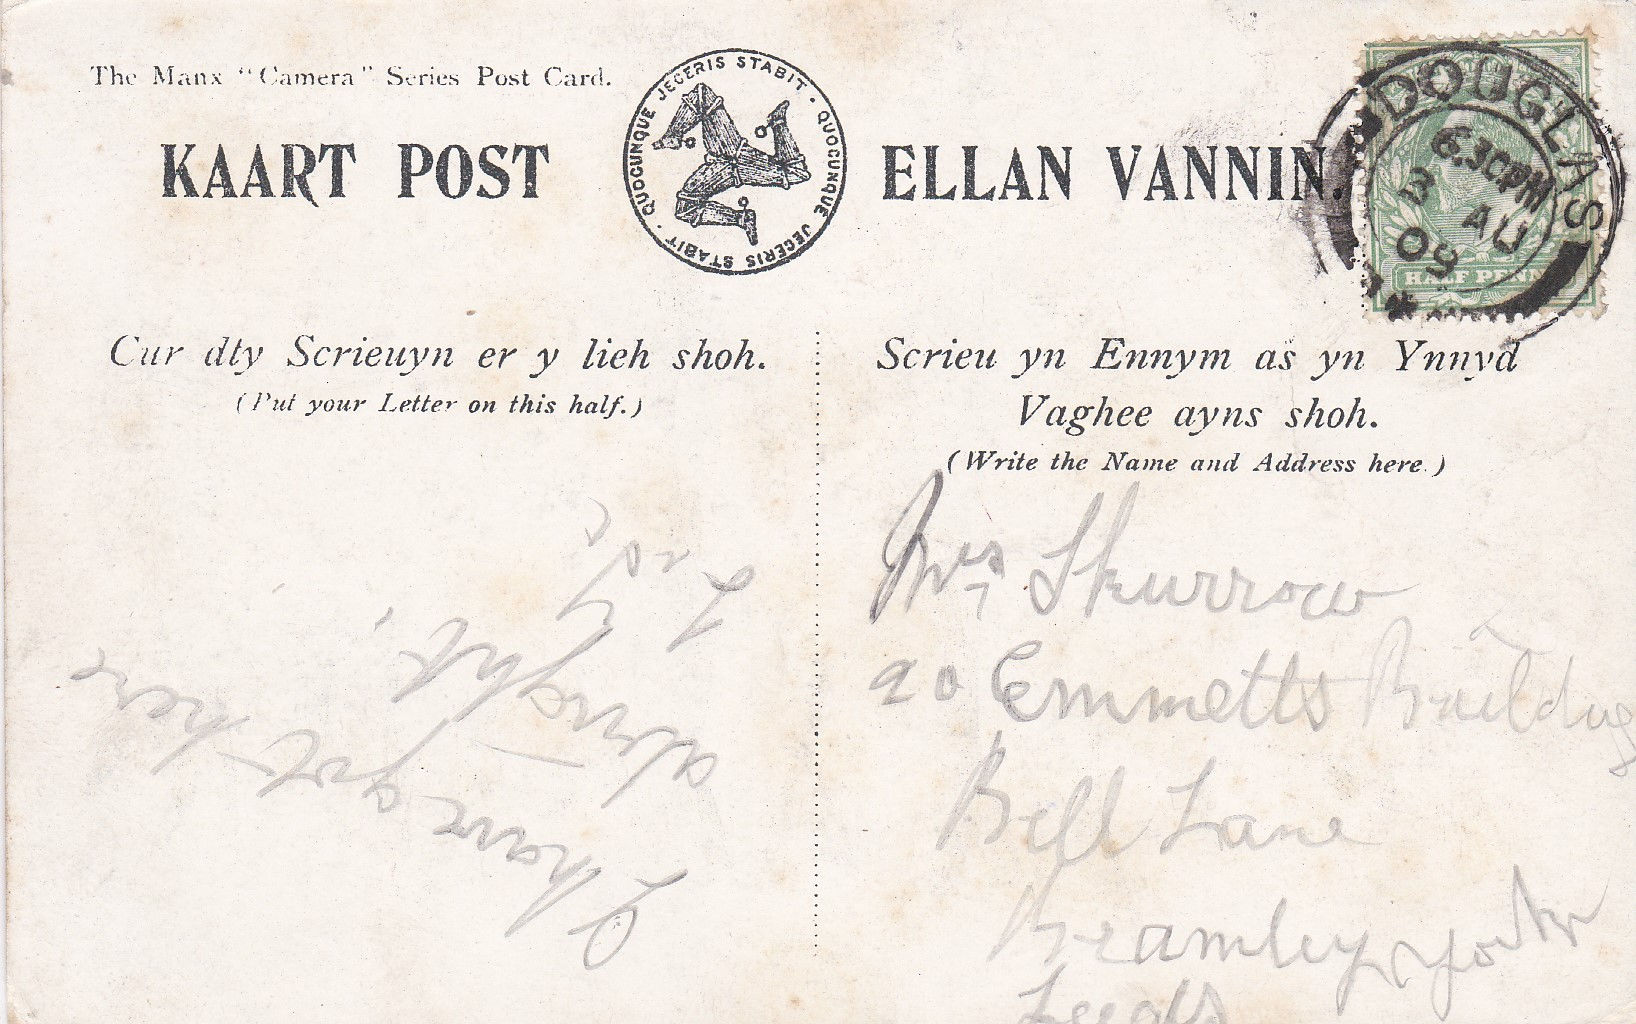 The Manx "Camera" Series Post Card.
KAART POST
QUOCUNQUE JECERIS STABIT · QUOCUNQUE JECERIS STABIT ·
ELLAN VANNIN.
DOUGLAS
6.30PM
3 AU
09
HALF PENN
Cur dty Scrieuyn er y lieh shoh.
(Put your Letter on this half.)
I have got here
alright,
Scrieu yn Ennym as yn Ynnyd
Vaghee ayns shoh.
(Write the Name and Address here.)
Mrs Skurrow
20 Emmetts Buildug
Bell Lane
Bramley
Leeds